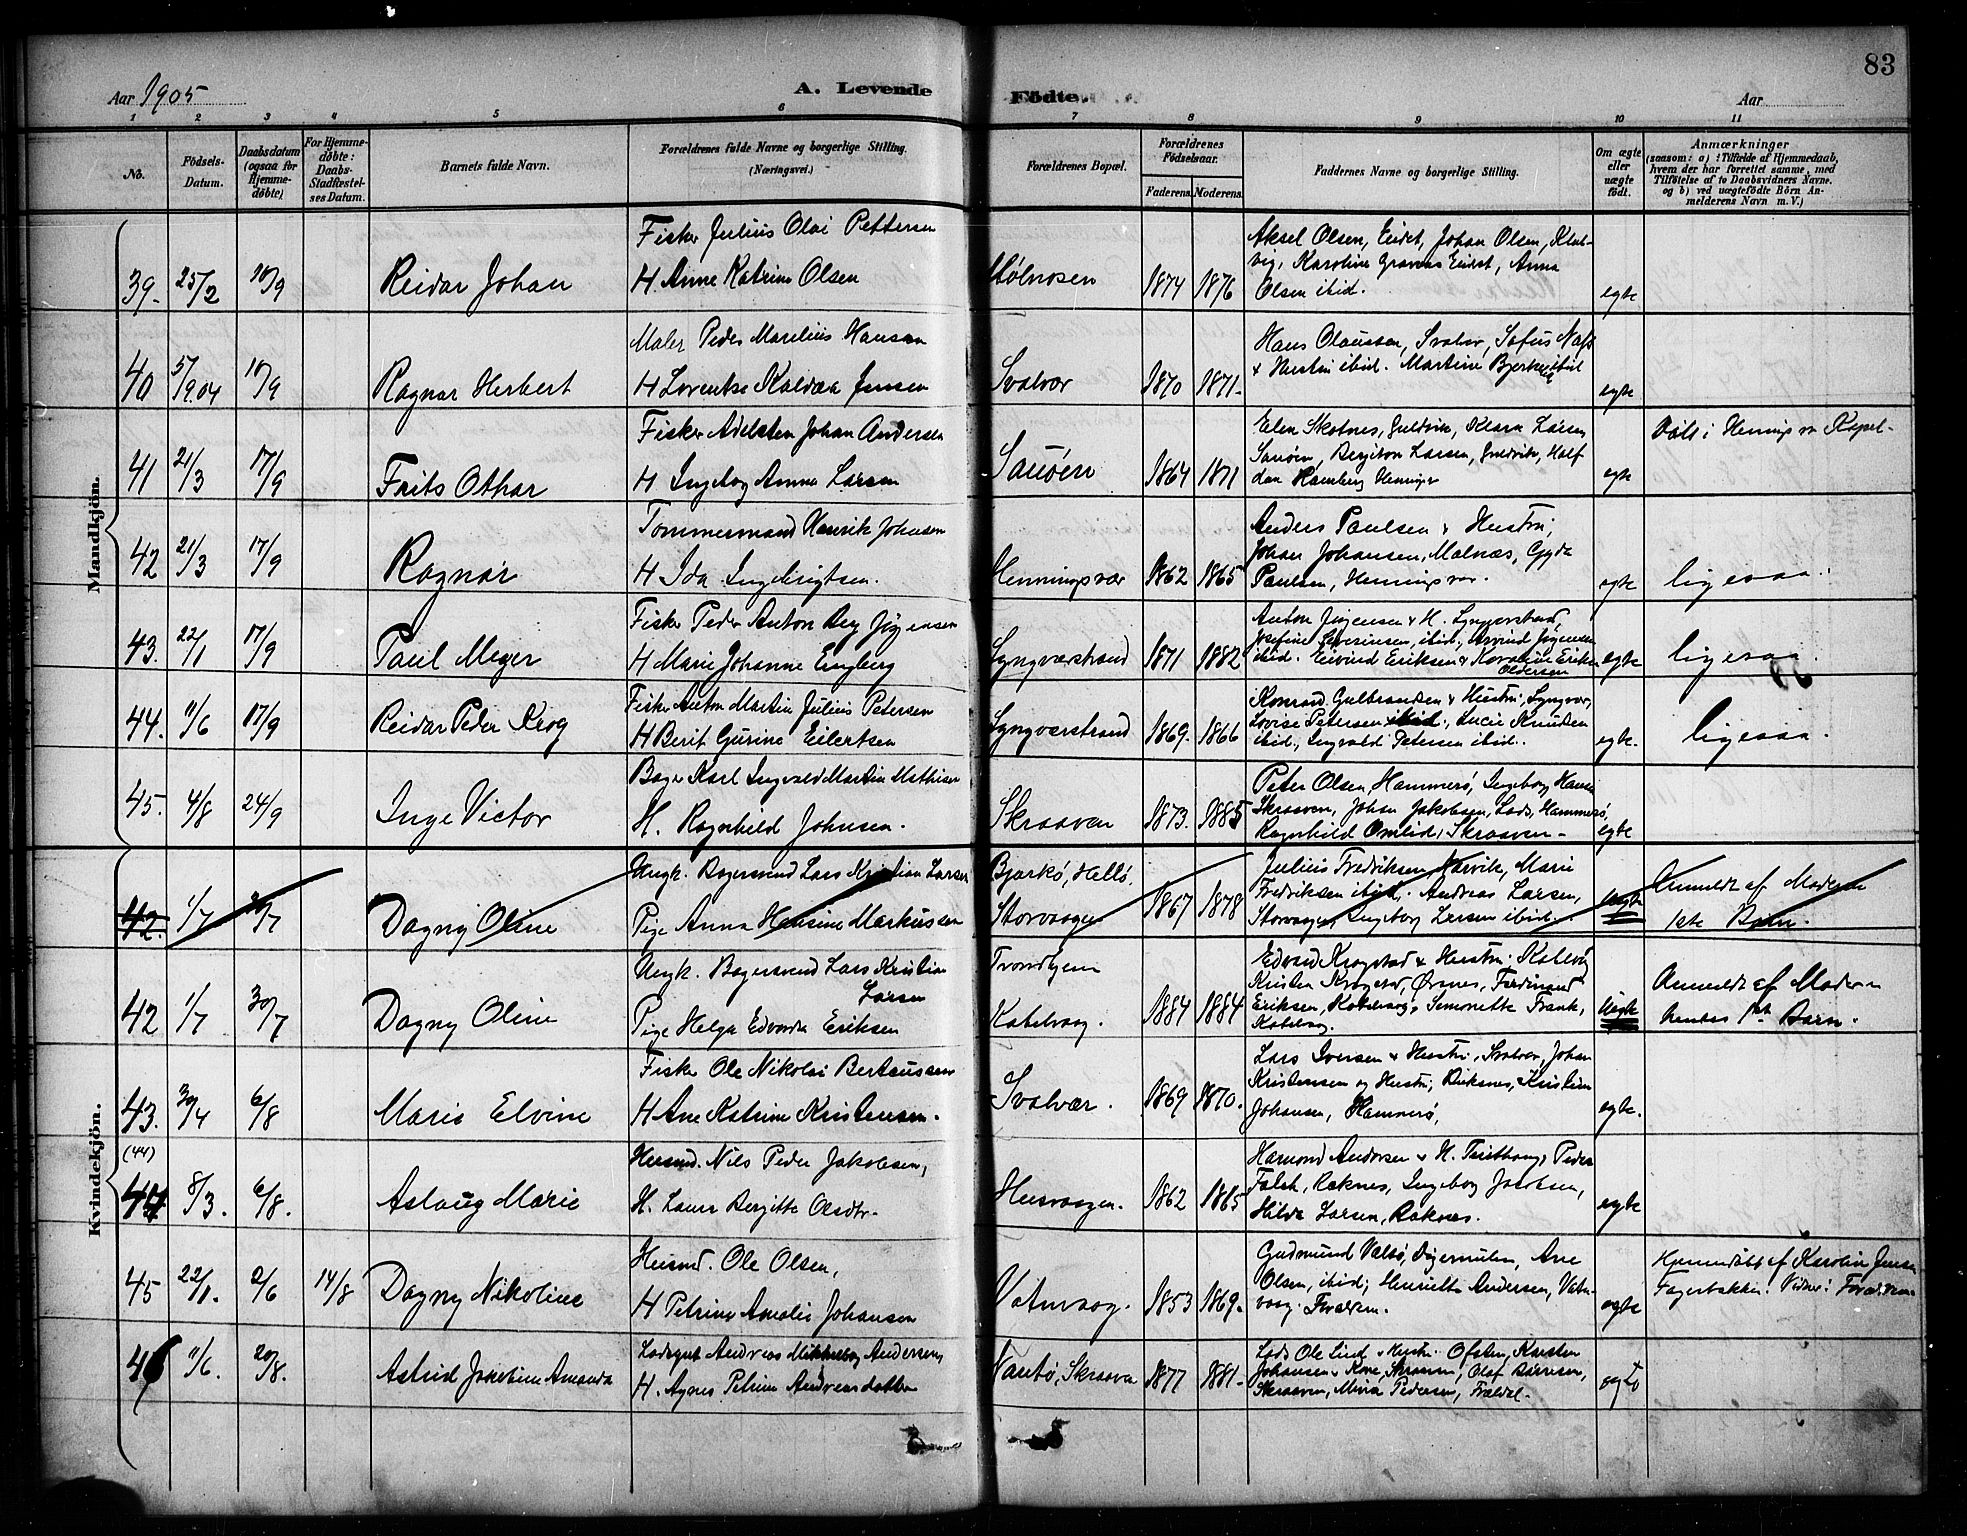 83
Aar 1905
A. Levende Fødte.
Aar
1 2 3 4 5 6 7 8 9 10 11
No.
Födsels-Datum.
Daabsdatum (ogsaa for Hjemmedöbte)
For Hjemmedøbte: Daabs-Stadfæstelses Datum.
Barnets fulde Navn.
Forældrenes fulde Navne og borgerlige Stilling.
(Næringsvei.)
Forældrenes Bopæl.
Forældrenes Födselsaar.
Faderens. Moderens.
Faddernes Navne og borgerlige Stilling.
Om ægte eller uægte födt.
Anmærkninger
(saasom: a) i Tilfælde af Hjemmedaab, hvem der har forrettet samme, med Tilföielse af to Daabsvidners Navne. og b) ved uægtefödte Börn Anmelderens Navn m. V.)
Mandkjön.
39. 25/2 10/9 Reidar Johan
Fisker Julius Olai Pettersen
H Anne Katrine Olsen
1874 1876
Aksel Olsen, Eidet, Johan Olsen,
Karoline Eidet, Anna
Olsen ibid.
egte
40 5/9.04 10/9 Ragnar Herbert
Maler Peder Marelius Hansen
H Lorentse Kaldaa Jensen
Svolvær 1870 1871.
Hans Olaussen, Svolvær, Sofus
& Hustru ibid. Martine ibid
egte
41 21/3 17/9 Frits Othar
Fisker Adelsten Johan Andersen
H Ingeborg Anna Larsen
Sauöen 1864 1871
Elen Skotnes, Guldvik, Klara Larsen
Sauöen, Larsen, Guldvik, Half
dan Ramberg
egte
Döbt i Kapel-
42 21/3 17/9 Ragnar
Tømmermand Henrik Johnsen
H Ida Ingebrigtsen.
Henningsvær 1862 1865
Anders Paulsen & Hustru,
Johan Johansen, Malnæs, Gyda
Paulsen, Henningsvær.
egte ligesaa.
43. 22/1 17/9 Paul Meyer
Fisker Peder Anton Jörgensen
H Marie Johanne Engberg
Lyngværstrand 1871 1882
Anton Jörgensen & H. Lyngværstrand,
Josefine Severinsen, ibid, Jörgensen
ibid. Eivind Eriksen &
egte ligesaa.
44. 11/6 17/9 Reidar Peder Krog
Fisker Anton Martin Julius Petersen
H Berit Gurine Eilertsen
Lyngværstrand 1869. 1866
Konrad Gulbrandsen & Hustru, Lyngvær,
Lovise Petersen ibid, Lucie Knudsen
ibid, Ingvald Petersen ibid.
egte. ligesaa.
45. 4/8 24/9 Inge Victor
Bager Karl Ingvald Martin Mathisen
H. Ragnhild Johnsen.
Skraaven 1873. 1885
Peter Olsen, Hammerö, Ingeborg
Skraaven, Johan Jakobsen, Lods, Hammerö,
Ragnhild Omlid, Skraaven.
egte
Kvindekjön.
42. 1/7 30/7 Dagny Oline
Ungk. Bagersvend Lars Kristian Larsen
Pige Anna Hansine Markussen
Bjarkö,
Storvaagen 1867 1878
Julius Fredriksen Narvik, Marie
Fredriksen ibid. Andreas Larsen,
Storvaagen, Ingeborg Larsen ibid.
uegte
Anmeldt af Moderen
1ste Barn.
42 1/7 30/7 Dagny Oline
Ungk. Bagersvend Lars Kristian
Larsen
Pige Helga Edvarda Eriksen
Trondhjem
Kabelvaag. 1884 1884
Edvard Krogstad & Hustru. Kabelvåg
Kristen Krogstad, Örsnes, Ferdinand
Eriksen, Kabelvaag, Simonette Frank,
Kabelvaag.
Uegte
Anmeldt af Moderen
hendes 1ste Barn.
43. 30/4 6/8 Marie Elvine
Fisker Ole Nikolai Berteussen
H Ane Katrine Kristensen.
Svolvær. 1869 1870.
Lars Iversen & Hustru, Svolvær, Johan
Kristensen og Hustru, Kristian
Johansen, Hammerö,
egte.
(44)
44 8/3. 6/8. Aslaug Marie
Husmd. Nils Peder Jakobsen,
H. Laura Bergitte Olsdtr.
Husvaagen. 1862 1865
Hamond Andersen & H. Peder
Falch, Raknes, Ingeborg Jacobsen,
Hilda Larsen, Raknes.
egte
45 22/1. 2/6 14/8 Dagny Nikoline
Husmd. Ole Olsen,
H Petrine Amalie Johansen
Vatnvaag. 1853 1869.
Gudmund Valsö, Digermulen, Ane
Olsen, ibid; Henriette Andersen, Vatn-
vaag. Forældrene.
egte
Hjemmedöbt af Karoline Jensen
Fagerbakken. Vidner: Forældrene
46 11/6. 20/8. Astrid Josefine Amanda
Lodsgut Andreas Andersen,
H. Agnes Petrine Andreasdatter
Skraaven 1877 1881.
Lods Ole Lind & Hustru. Ofoten, Karsten
Johansen & Kone, Skraaven, Olaf
Skraaven, Mina Pedersen,
egte